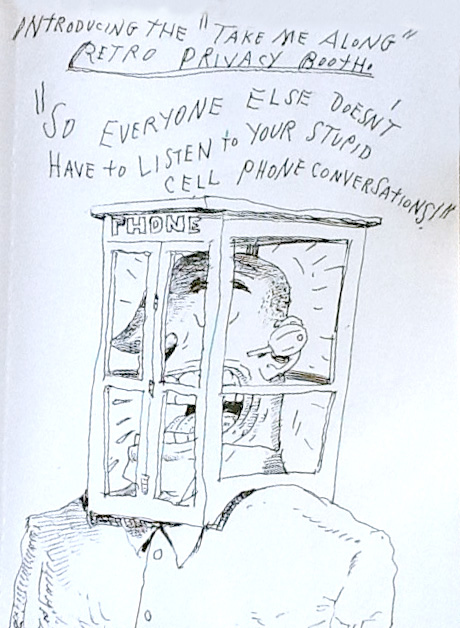 INTRODUCING THE "TAKE ME ALONG"
RETRO PRIVACY BOOTH.
"SO EVERYONE ELSE DOESN'T
HAVE to LISTEN to YOUR STUPID
CELL PHONE CONVERSATIONS!!"
PHONE